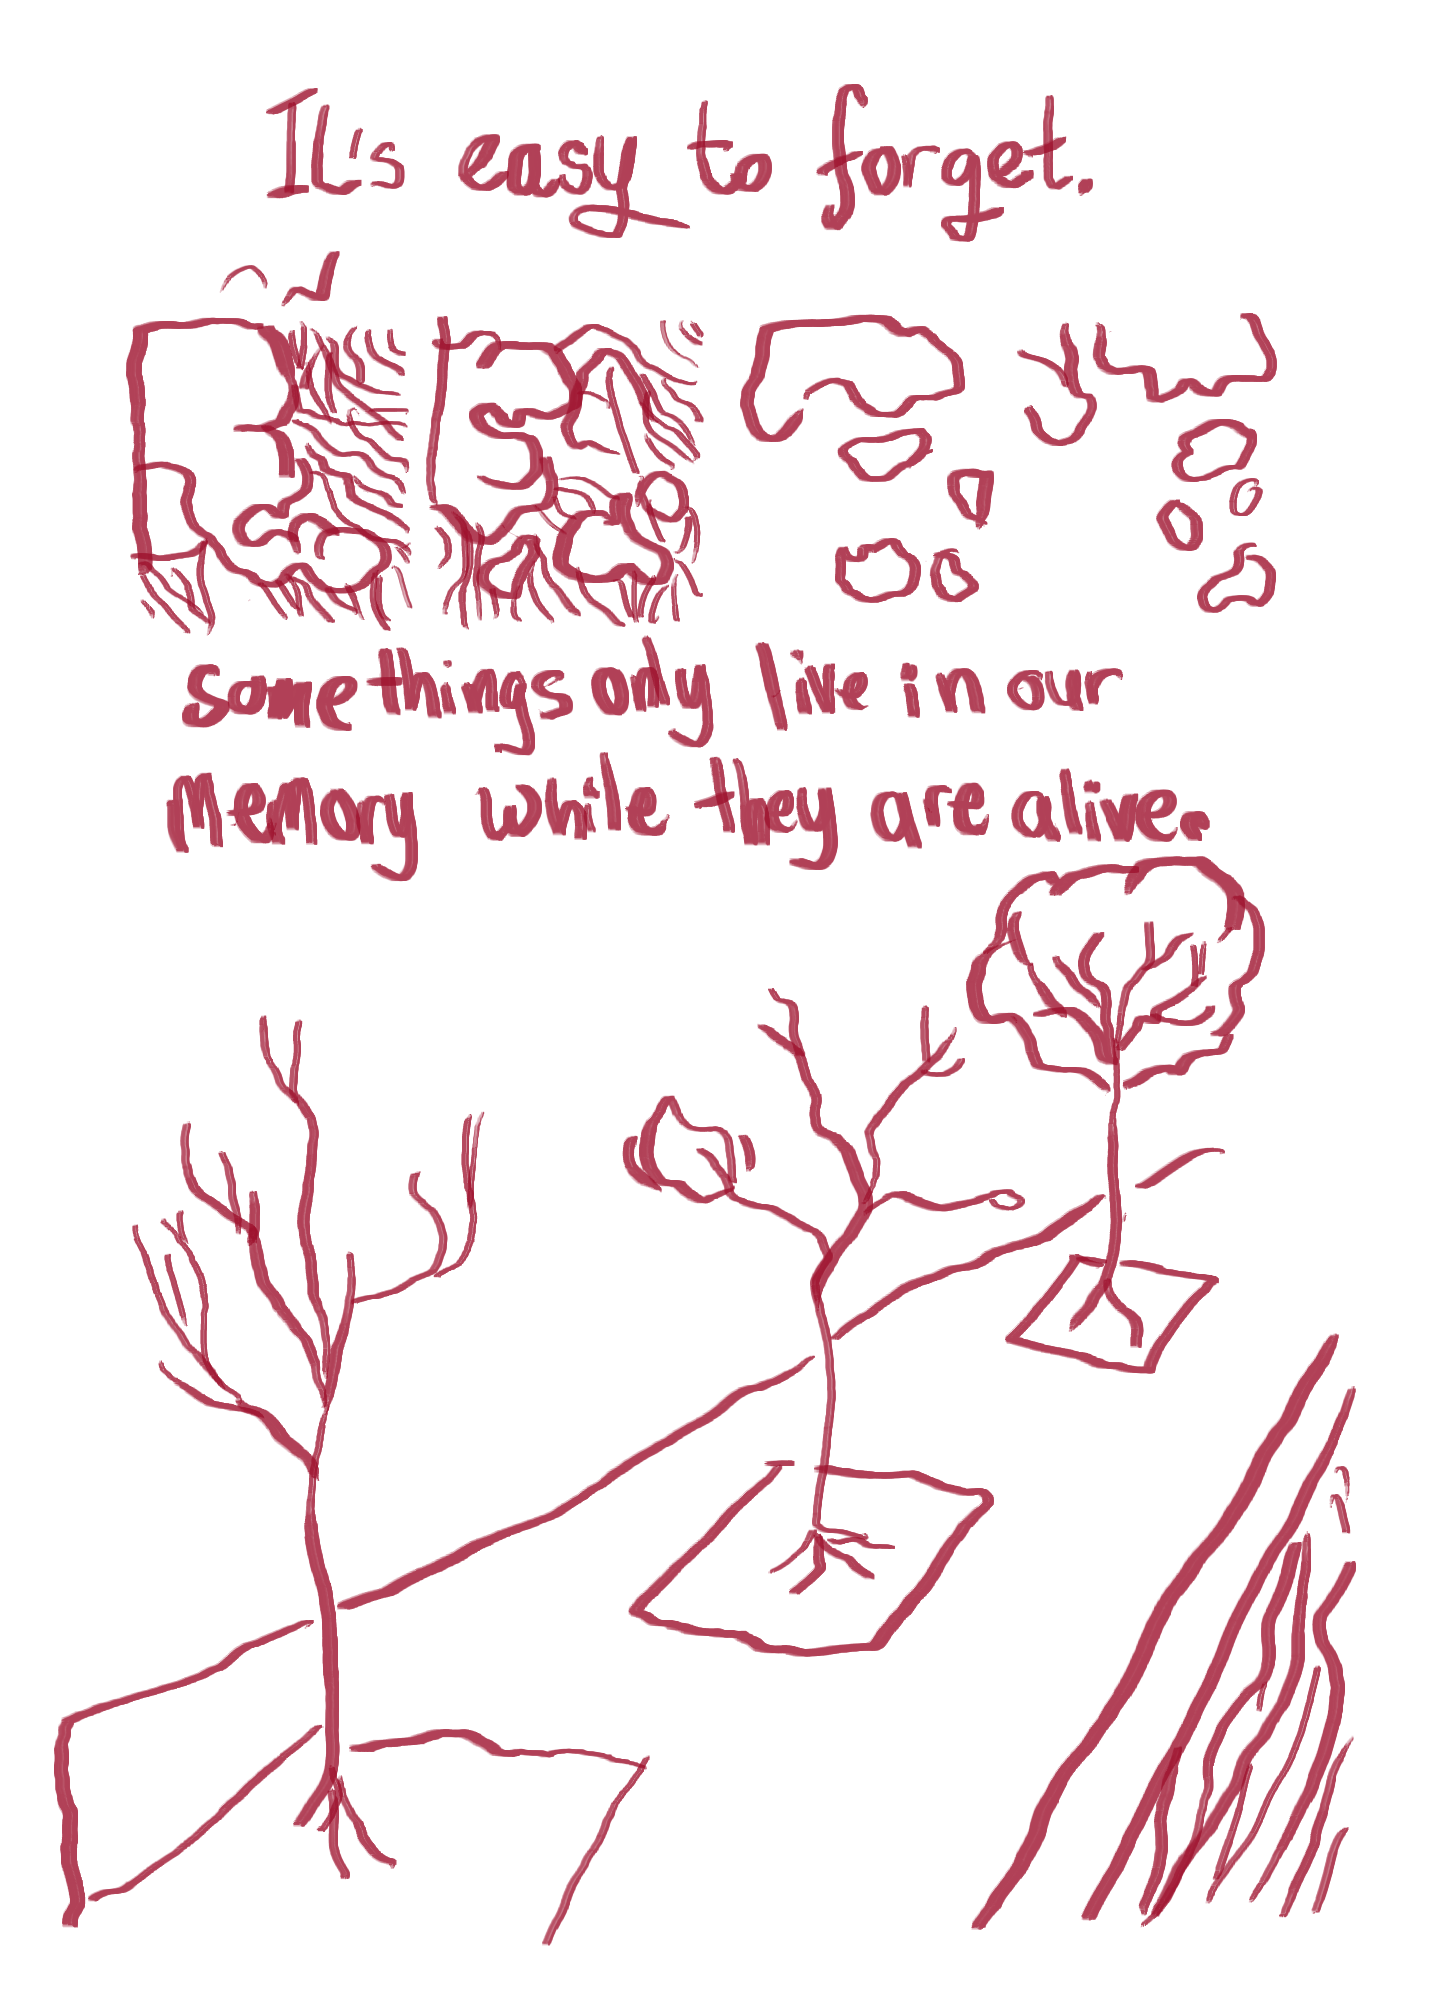 It's easy to forget.
some things only live in our
memory while they are alive.